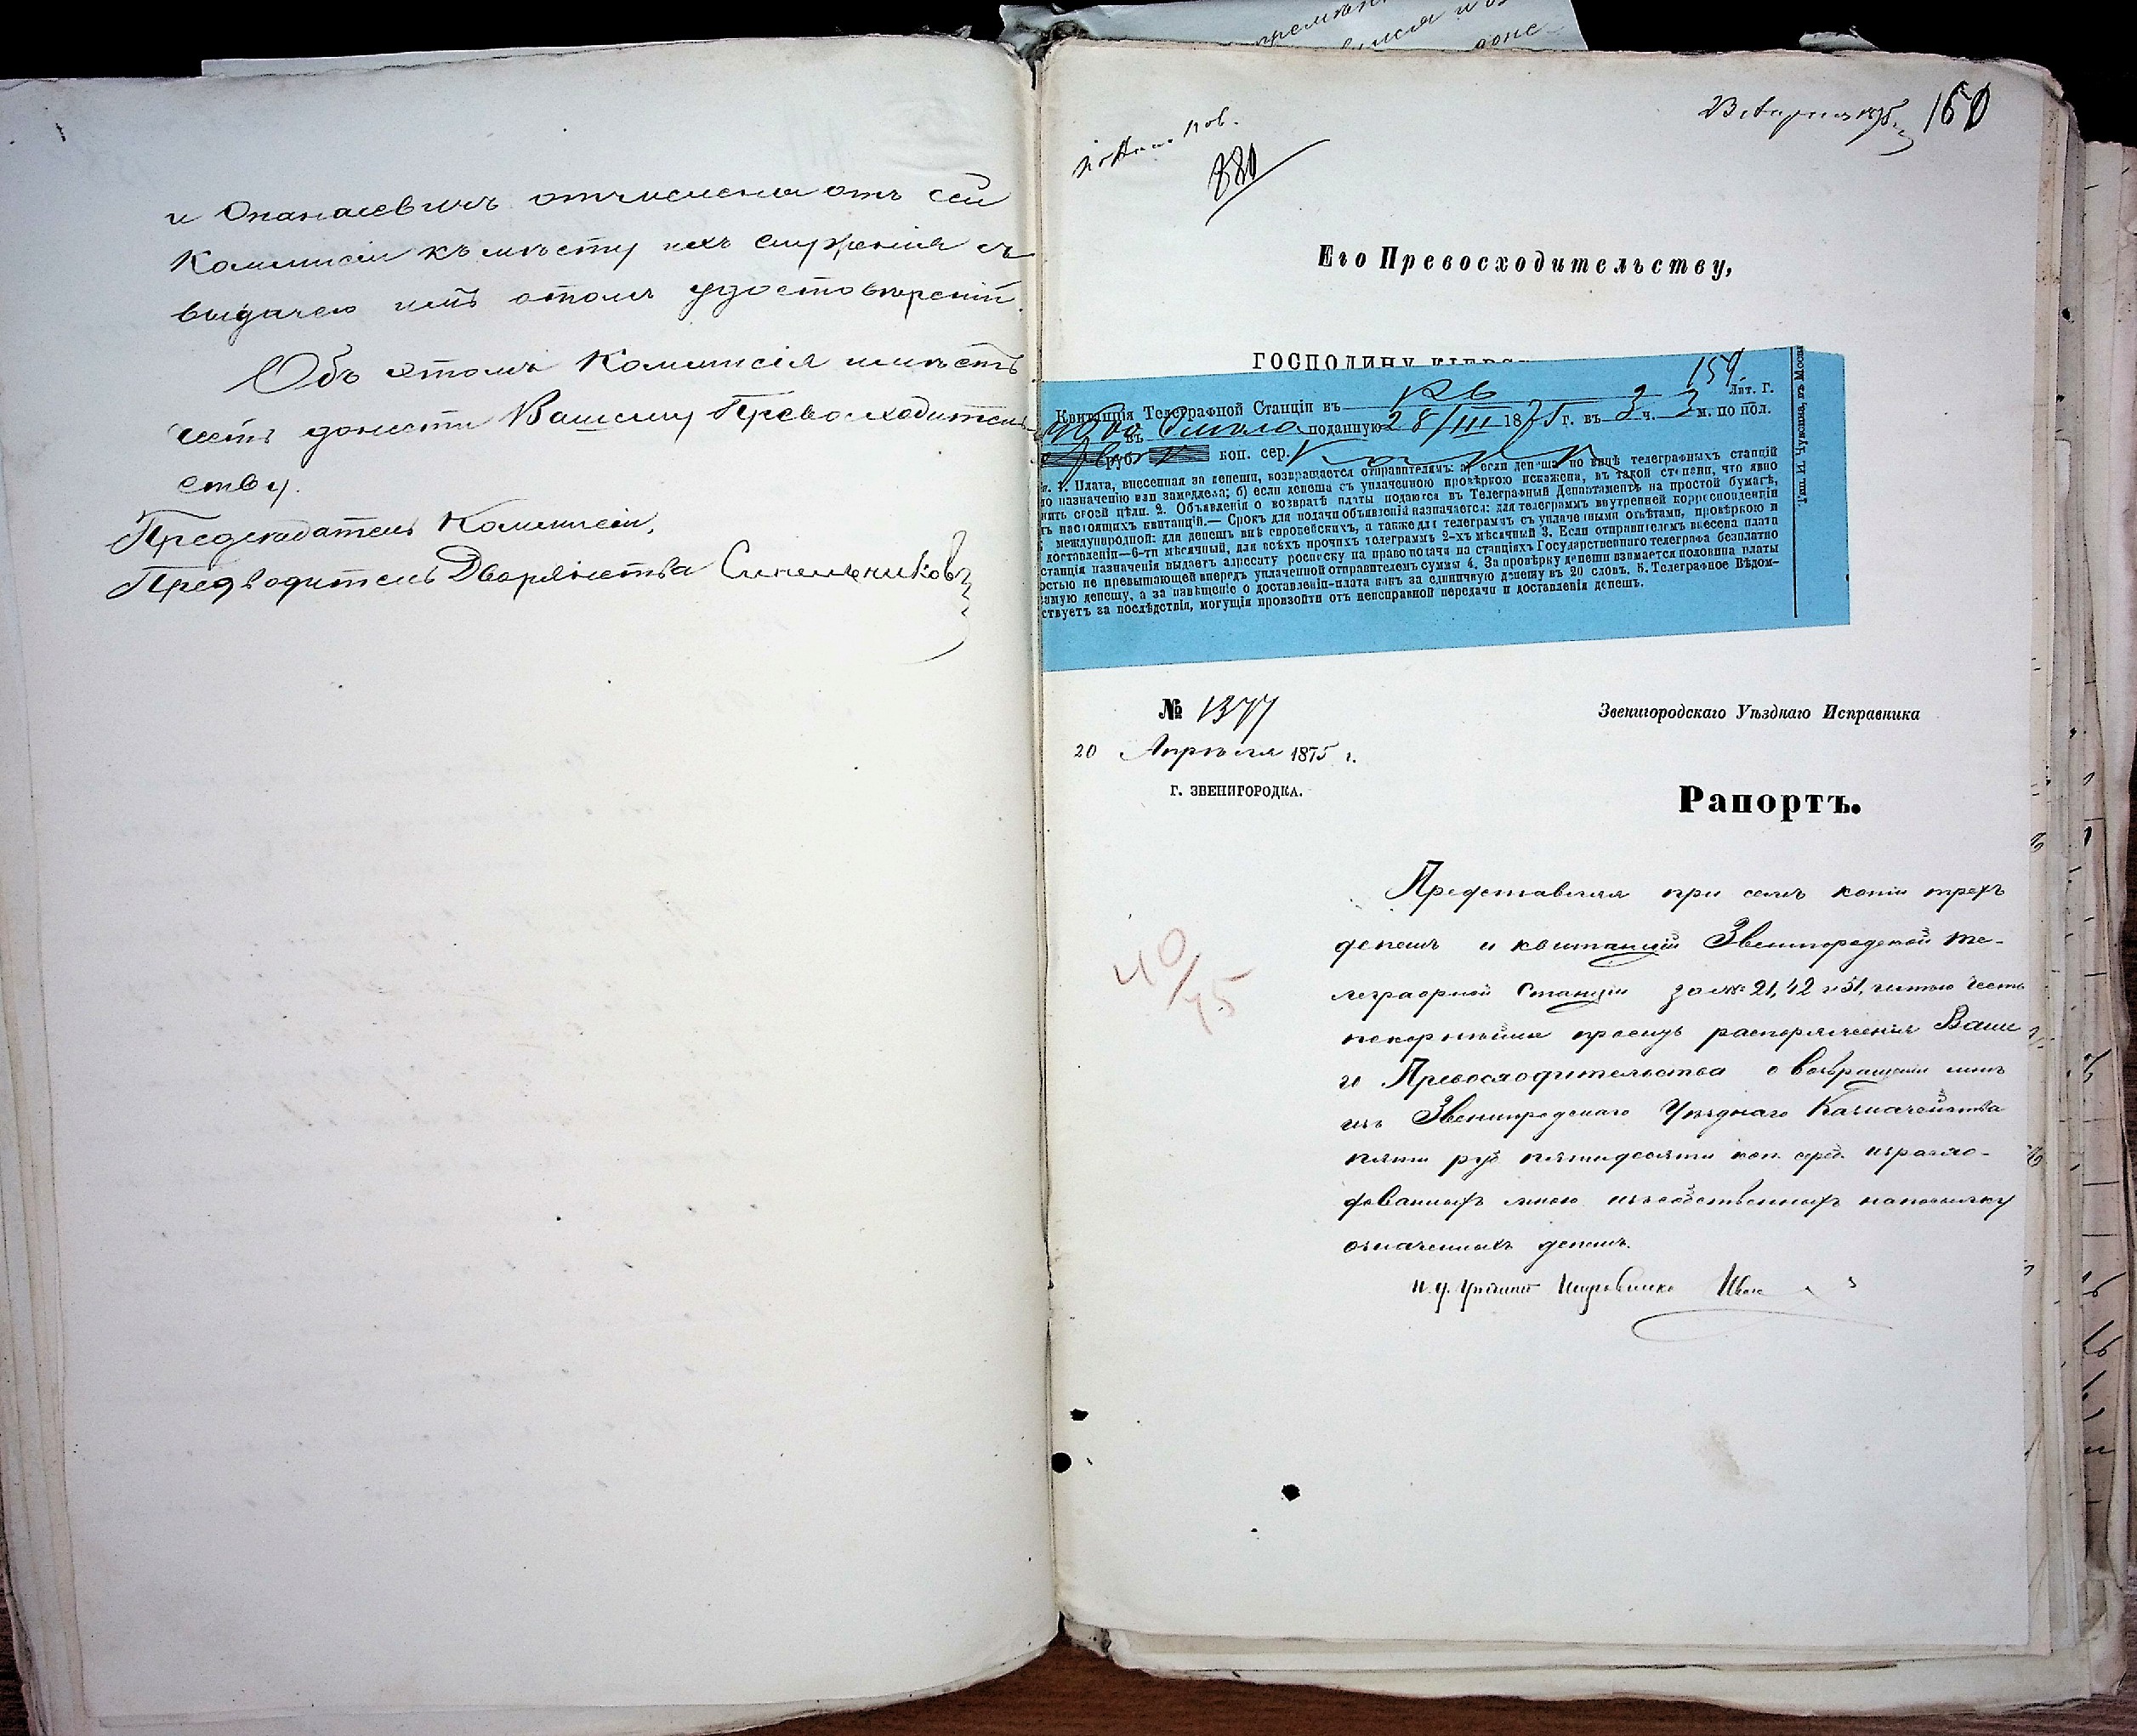 и Опанасевичъ отчислены отъ сей
Комисіи къ мѣсту ихъ служенія съ
выдачею имъ о томъ удостовѣреній.
Объ этомъ Комисія имѣетъ
честь донести Вашему Превосходитель
ству.
Предсѣдатель Комисіи,
Предводитель Дворянства Синельниковъ
160
880
Его Превосходительству,
ГОСПОДИНУ КІЕВС
159
Лит. Г.
Квитанція Телеграфной Станціи въ
въ Смѣла поданную 28/III 1875 г. въ 3 ч. 3 м. по пол.
руб. коп. сер.
1. Плата, внесенная за депеши, возвращается отправителямъ: а) если депеша по винѣ телеграфныхъ станцій
по назначенію или замедлена; б) если депеша съ уплаченною провѣркою искажена, въ такой степени, что явно
нить своей цѣли. 2. Объявленія о возвратѣ платы подаются въ Телеграфный Департаментъ на простой бумагѣ,
настоящихъ квитанцій.— Срокъ для подачи объявленій назначается: для телеграммъ внутренней корреспонденціи
международной: для депешъ внѣ европейскихъ, а также для телеграммъ съ уплаченными отвѣтами, провѣркою и
доставленіи—6-ти мѣсячный, для всѣхъ прочихъ телеграммъ 2-хъ мѣсячный 3. Если отправителемъ внесена плата
станція назначенія выдаетъ адресату росписку на право подачи на станціяхъ Государственнаго телеграфа безплатно
остью не превышающей впередъ уплаченной отправителемъ суммы 4. За провѣрку депеши взимается половина платы
самую депешу, а за извѣщеніе о доставленіи-плата какъ за единичную депешу въ 20 словъ. 5. Телеграфное Вѣдом-
ствуетъ за послѣдствія, могущія произойти отъ неисправной передачи и доставленія депешъ.
Тип. И. Чуксина, въ Москв
№ 1377
Звенигородскаго Уѣзднаго Исправника
20 Апрѣля 1875 г.
Г. ЗВЕНИГОРОДКА.
Рапортъ.
Представляя при семъ копіи трехъ
депешъ и квитанціи Звенигородской те-
леграфной Станціи за №№ 21, 42 и 51, имѣю честь
покорнѣйше просить распоряженія Ваше
го Превосходительства о возвращеніи мнѣ
изъ Звенигородскаго Уѣзднаго Казначейства
пяти руб. пятидесяти коп. сереб. израсхо-
дованныхъ мною изъ собственныхъ на посылку
означенныхъ депешъ.
И. д. Уѣзднаго Исправника
40/75